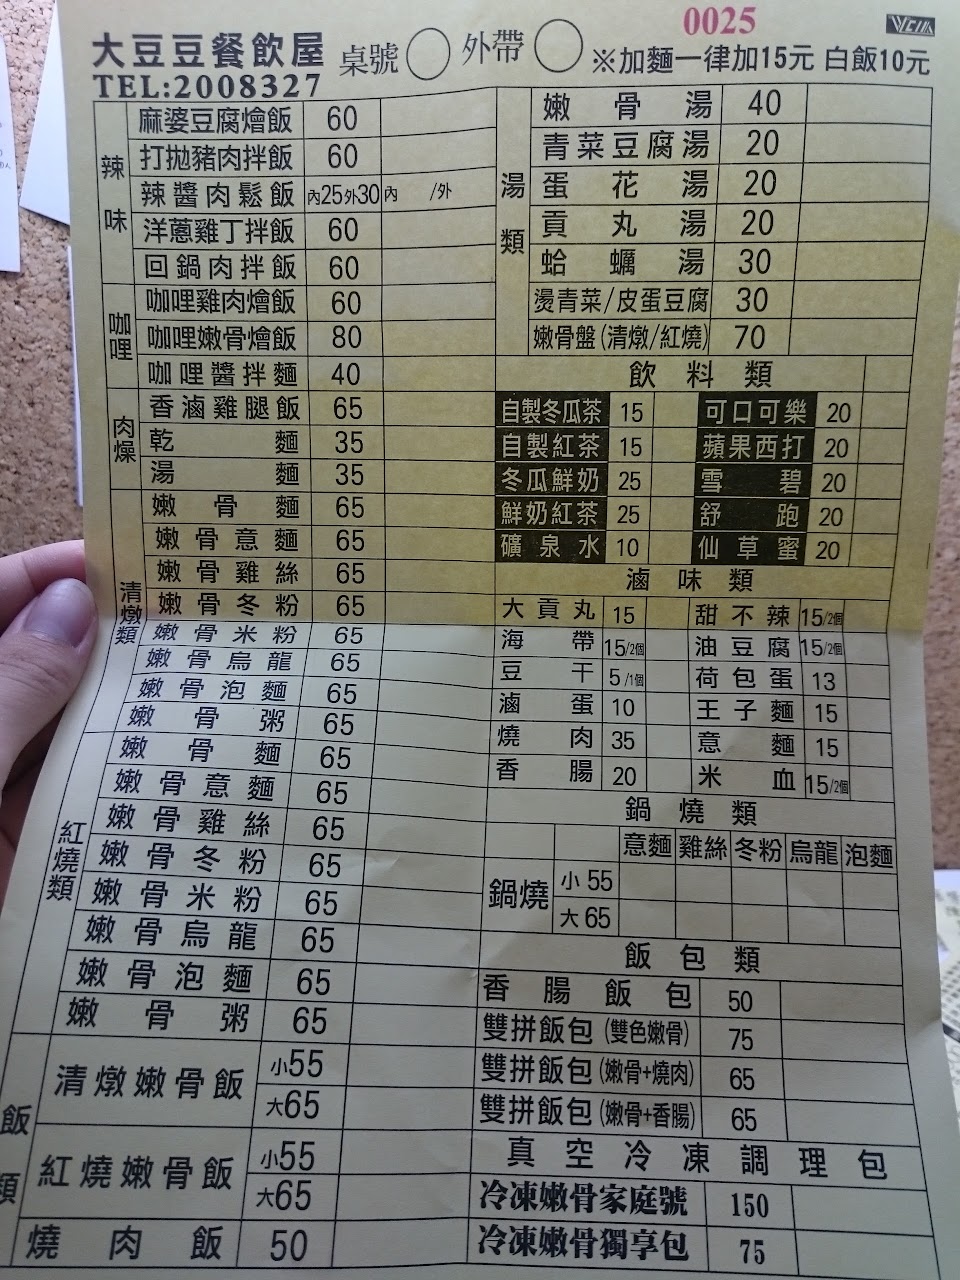 0025
VCIM
大豆豆餐飲屋 桌號 外帶
TEL:2008327
※加麵一律加15元 白飯10元
辣味
麻婆豆腐燴飯 60
打拋豬肉拌飯 60
辣醬肉鬆飯 內25外30 內 /外
洋蔥雞丁拌飯 60
回鍋肉拌飯 60
咖哩
咖哩雞肉燴飯 60
咖哩嫩骨燴飯 80
咖哩醬拌麵 40
肉燥
香滷雞腿飯 65
乾麵 35
湯麵 35
清燉類
嫩骨麵 65
嫩骨意麵 65
嫩骨雞絲 65
嫩骨冬粉 65
嫩骨米粉 65
嫩骨烏龍 65
嫩骨泡麵 65
嫩骨粥 65
紅燒類
嫩骨麵 65
嫩骨意麵 65
嫩骨雞絲 65
嫩骨冬粉 65
嫩骨米粉 65
嫩骨烏龍 65
嫩骨泡麵 65
嫩骨粥 65
飯類
清燉嫩骨飯 小55
大65
紅燒嫩骨飯 小55
大65
燒肉飯 50
湯類
嫩骨湯 40
青菜豆腐湯 20
蛋花湯 20
貢丸湯 20
蛤蠣湯 30
燙青菜/皮蛋豆腐 30
嫩骨盤(清燉/紅燒) 70
飲料類
自製冬瓜茶 15 可口可樂 20
自製紅茶 15 蘋果西打 20
冬瓜鮮奶 25 雪碧 20
鮮奶紅茶 25 舒跑 20
礦泉水 10 仙草蜜 20
滷味類
大貢丸 15 甜不辣 15/2個
海帶 15/2個 油豆腐 15/2個
豆干 5/1個 荷包蛋 13
滷蛋 10 王子麵 15
燒肉 35 意麵 15
香腸 20 米血 15/2個
鍋燒類
意麵 雞絲 冬粉 烏龍 泡麵
鍋燒 小55
大65
飯包類
香腸飯包 50
雙拼飯包(雙色嫩骨) 75
雙拼飯包(嫩骨+燒肉) 65
雙拼飯包(嫩骨+香腸) 65
真空冷凍調理包
冷凍嫩骨家庭號 150
冷凍嫩骨獨享包 75